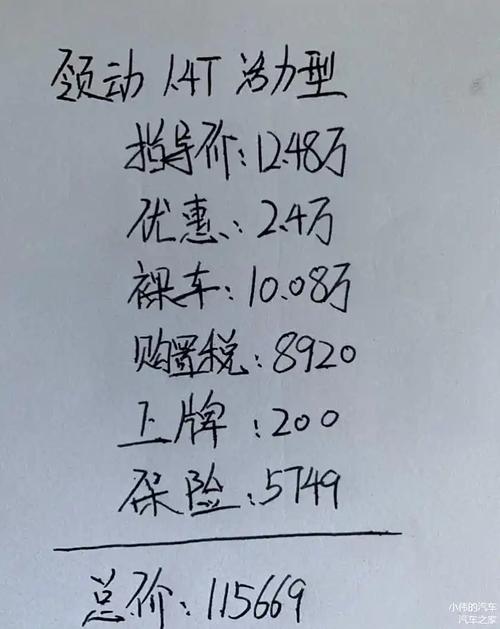 领动 1.4T 活力型
指导价：12.48万
优惠：2.4万
裸车：10.08万
购置税：8920
上牌：200
保险：5749
总价：115669
小伟的汽车
汽车之家